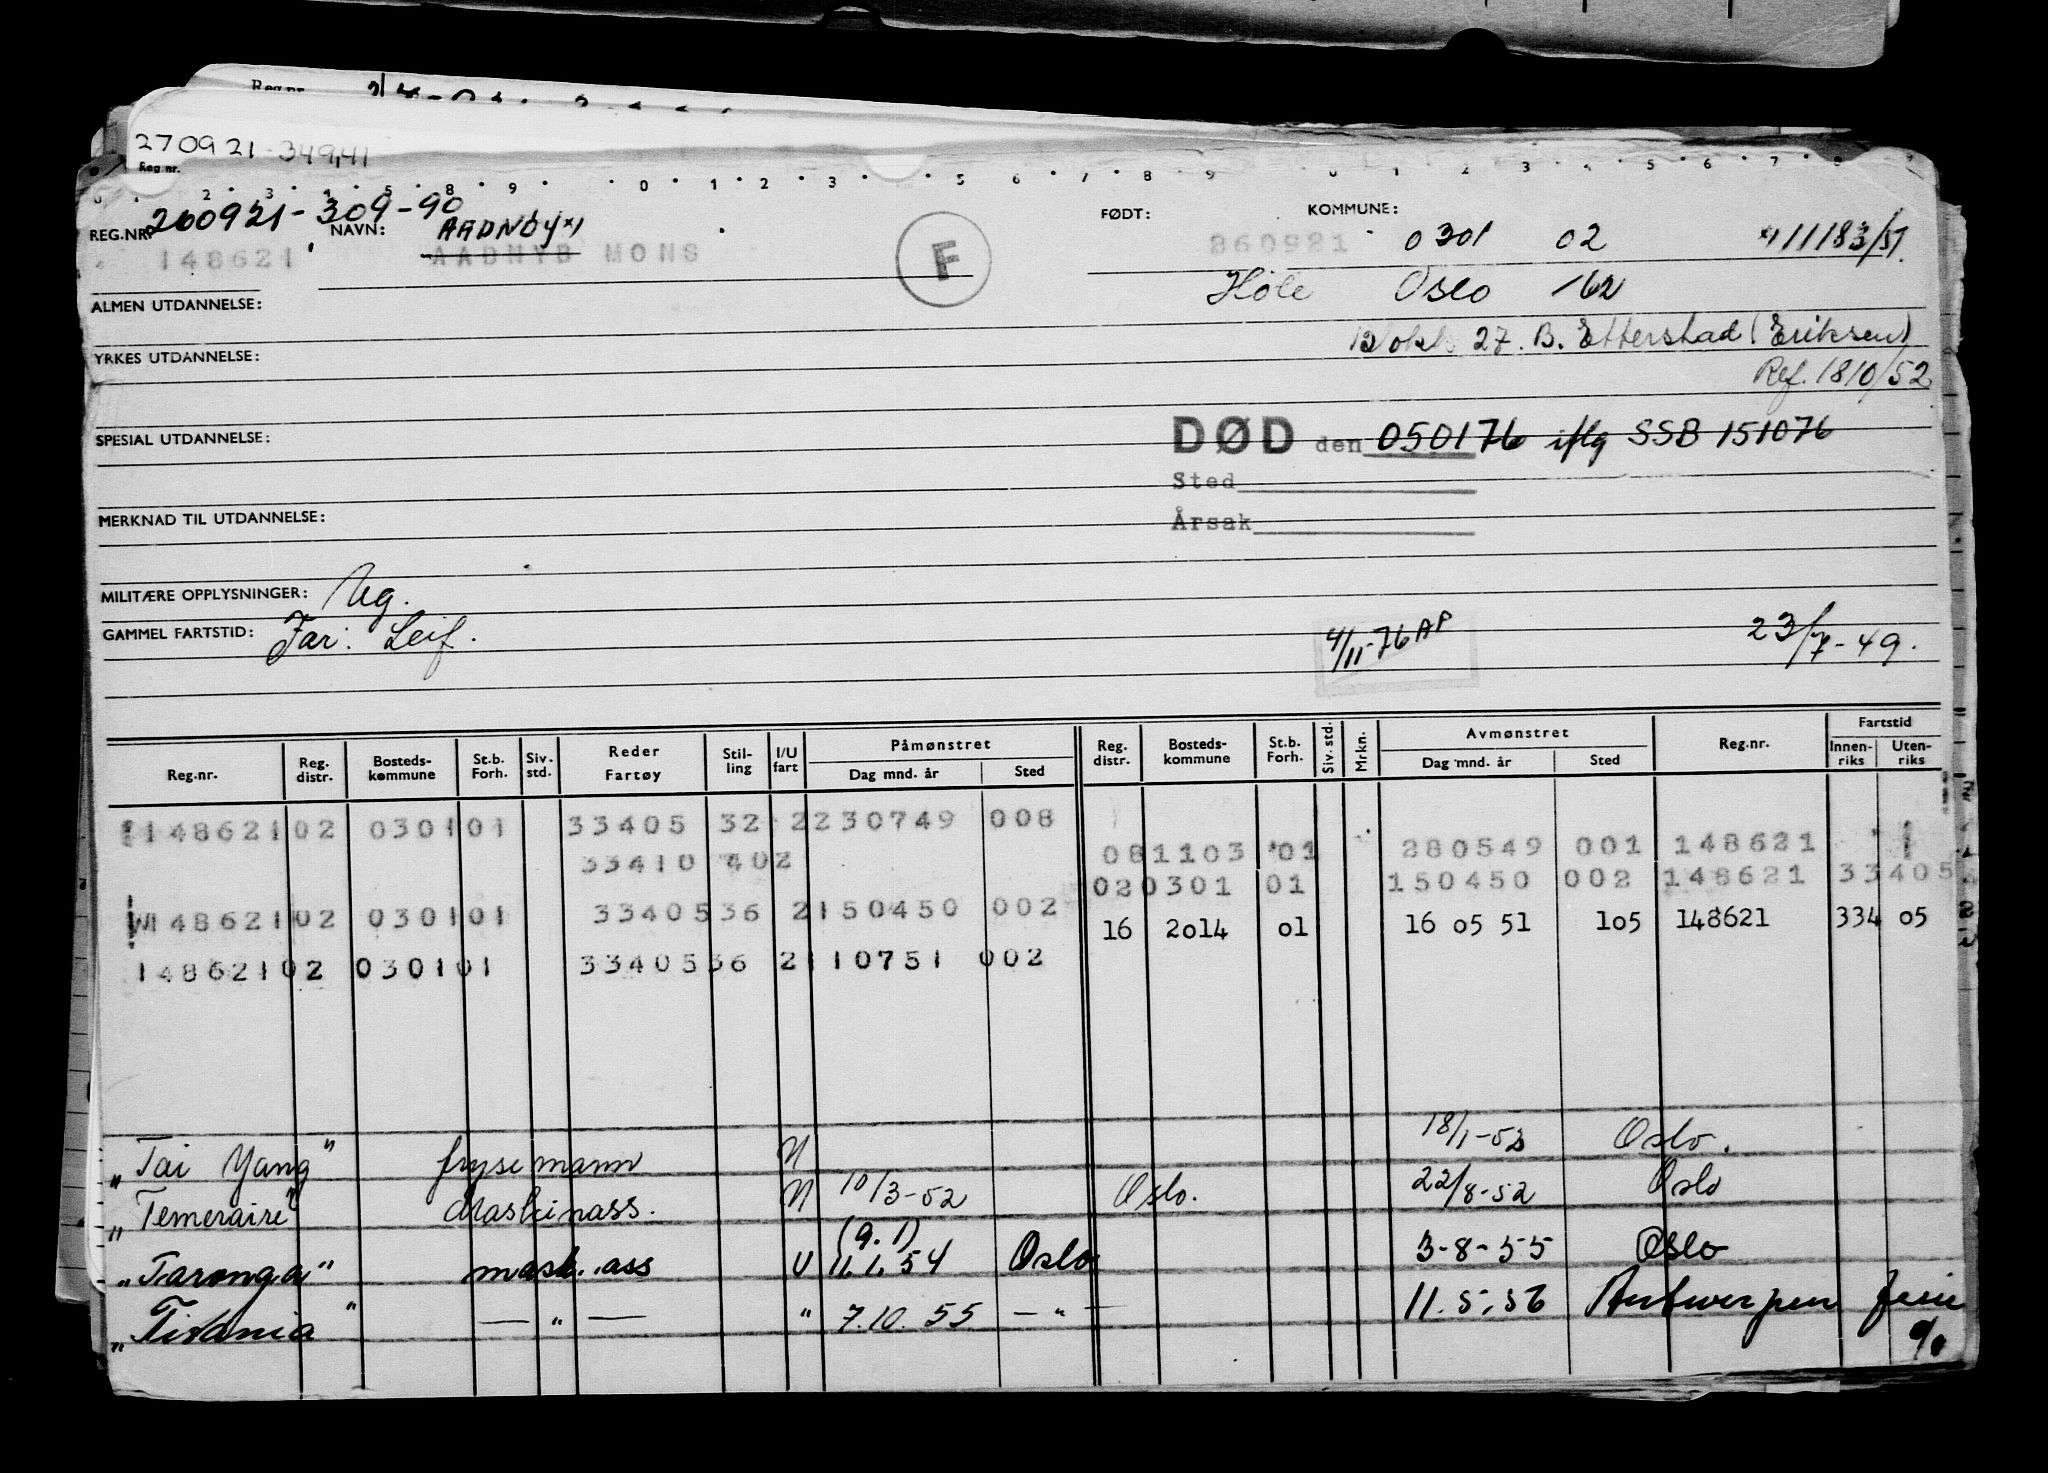 Reg.nr.
270921-349,41
Reg.nr.
2 3 4 5 8 9 0 1 2 3 4 5 6 7 8 9 0 1 2 3 4 5 6 7 8
REG.NR. 260921-309-90 NAVN: AADNØY x) FØDT: KOMMUNE: 0301 02 111183/51.
148621 AADNYB MONS F 260921
Høle Oslo 162
ALMEN UTDANNELSE:
Blokk 27. B. Etterstad (Eriksen)
YRKES UTDANNELSE:
Ref. 1810/52
SPESIAL UTDANNELSE: DØD den 050176 iflg SSB 151076
Sted
MERKNAD TIL UTDANNELSE: Årsak
MILITÆRE OPPLYSNINGER: Ug.
GAMMEL FARTSTID: Far: Leif. 4/11-76 AP 23/7-49.
Reg.nr. Reg. distr. Bosteds-kommune St.b. Forh. Siv. std. Reder Fartøy Stil-ling I/U fart Påmønstret Dag mnd. år Sted Reg. distr. Bosteds-kommune St.b. Forh. Siv. std. Mrkn. Avmønstret Dag mnd. år Sted Reg.nr. Fartstid Innen-riks Uten-riks
148621 02 0301 01 33405 32 2 230749 008
33410 402 08 1103 01 280549 001 148621
02 0301 01 150450 002 148621 33405
148621 02 0301 01 33405 36 2 150450 002
16 2014 01 16 05 51 105 148621 334 05
148621 02 0301 01 33405 36 2 110751 002
"Tai Yang" frysemann U 18/1-52 Oslo.
"Temeraire" Maskinass. U 10/3-52 Oslo. 22/8-52 Oslo
(9.1)
"Taronga" mask.ass U 11.1.54 Oslo 3-8-55 Oslo
"Titania" — " — " 7.10.55 — " — 11.5.56 Antwerpen ferie